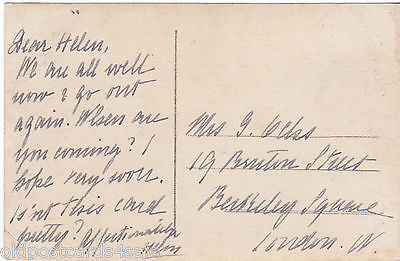 Dear Helen,
We are all well
now & go out
again. When are
you coming? I
hope very soon.
Isn't this card
pretty? Affectionately
Mrs G.
19 Bruton Street
Berkeley Square
London. W.
oldpostcards4sale